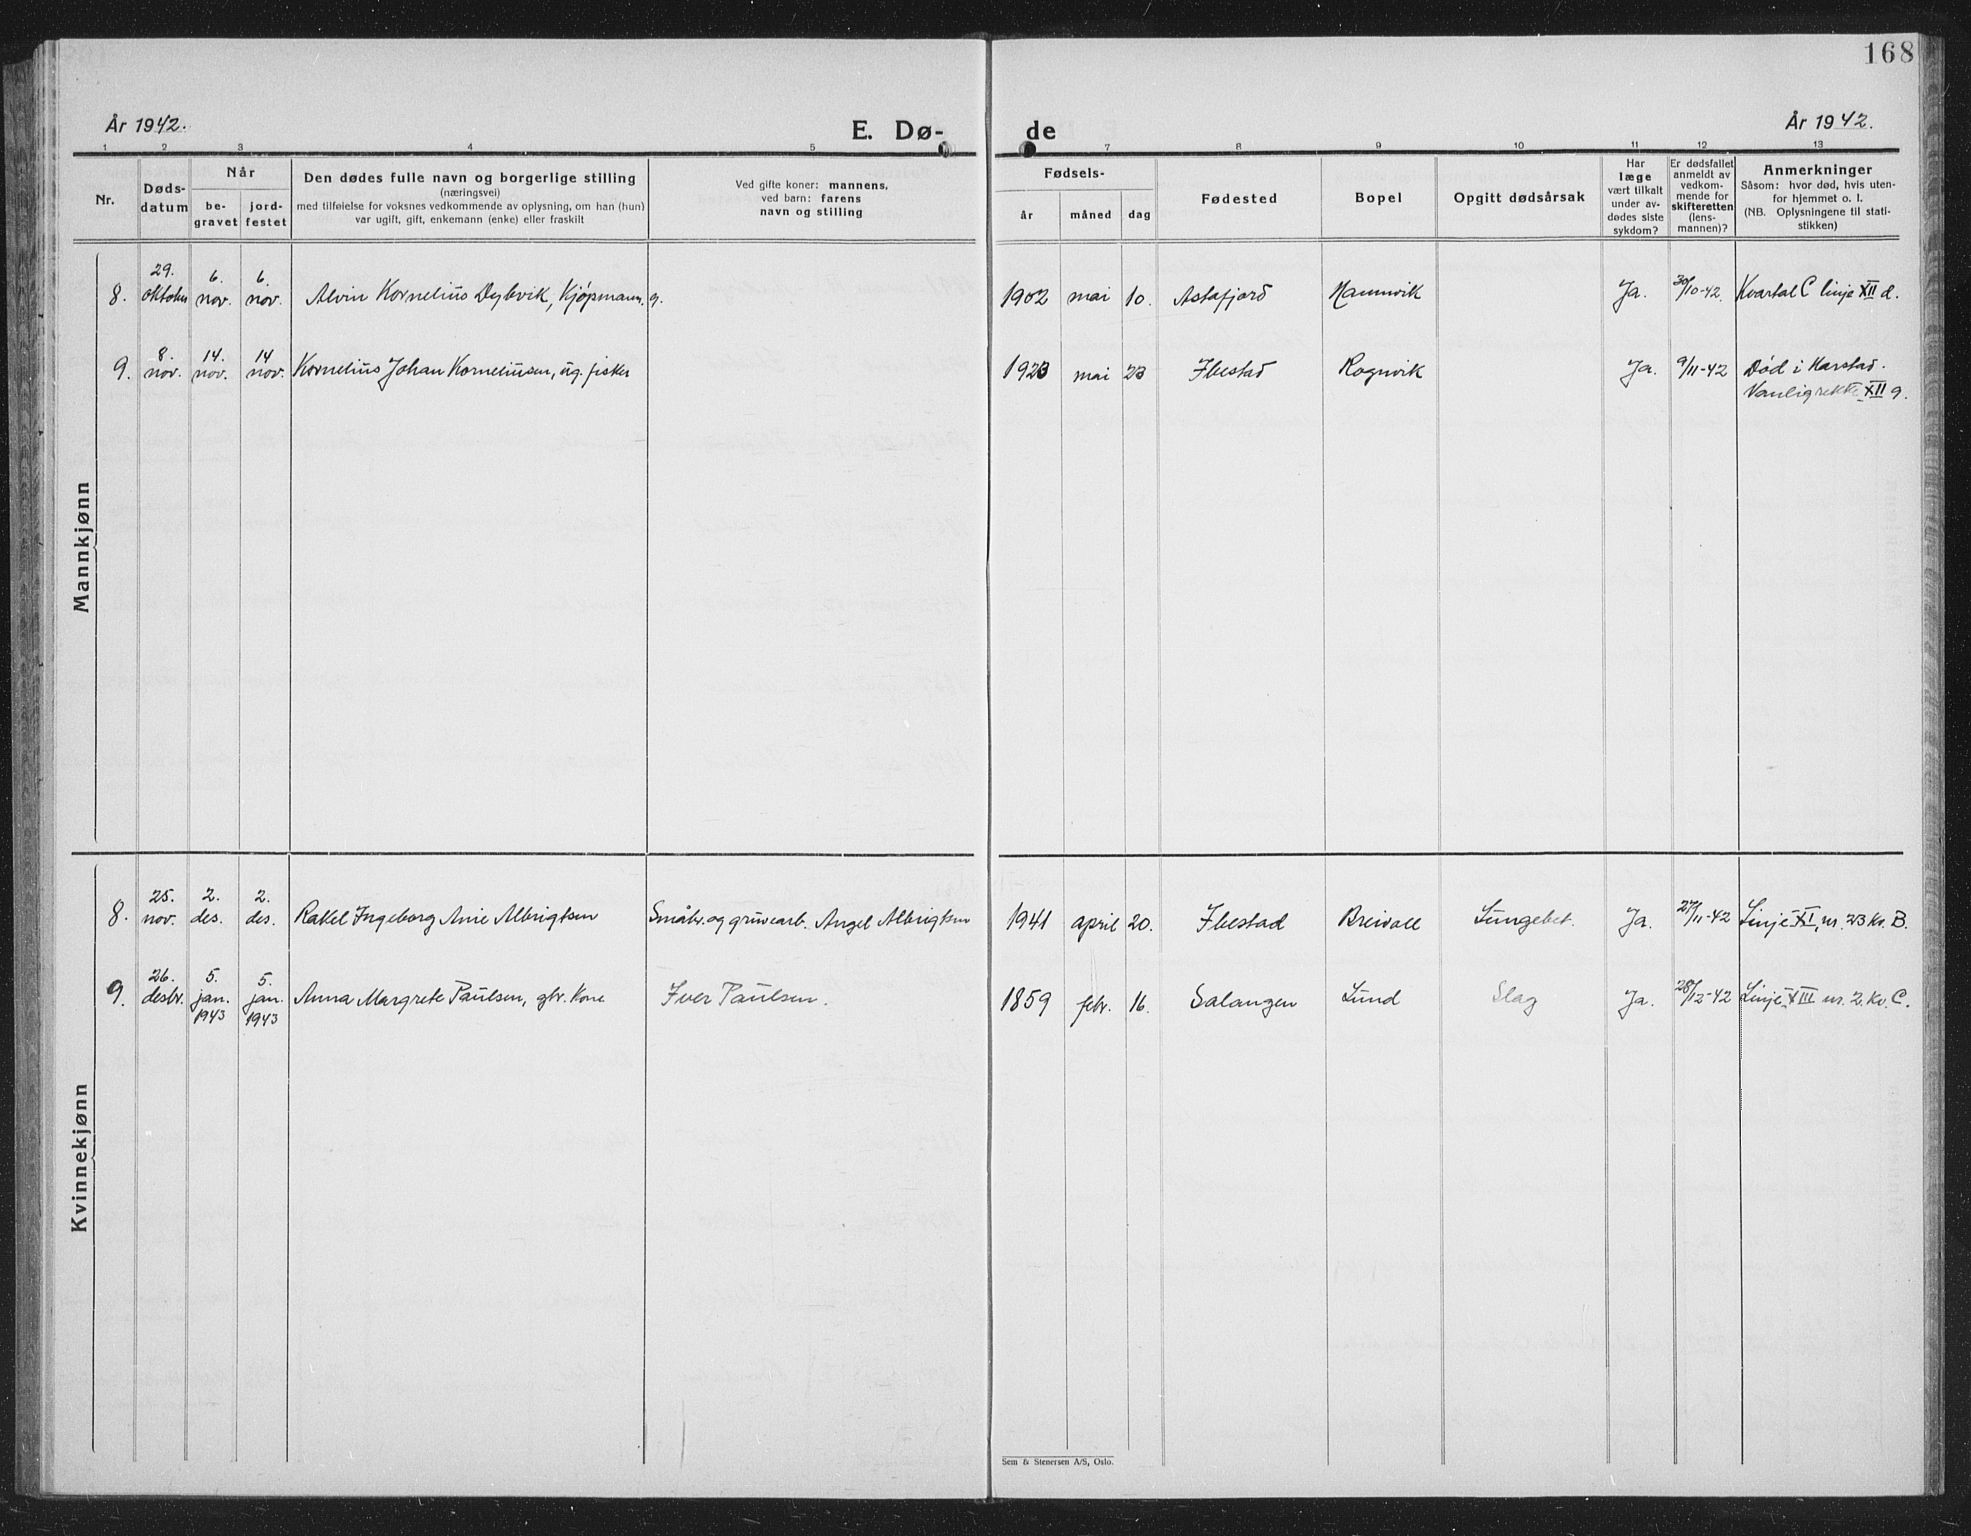 168
År 1942.
E. Dø-
de
År 1942.
1 2 3 4 5 7 8 9 10 11 12 13
Nr.
Døds-
datum
Når
be-
gravet
jord-
festet
Den dødes fulle navn og borgerlige stilling
(næringsvei)
med tilføielse for voksnes vedkommende av oplysning, om han (hun)
var ugift, gift, enkemann (enke) eller fraskilt
Ved gifte koner: mannens,
ved barn: farens
navn og stilling
Fødsels-
år
måned
dag
Fødested
Bopel
Opgitt dødsårsak
Har
læge
vært tilkalt
under av-
dødes siste
sykdom?
Er dødsfallet
anmeldt av
vedkom-
mende for
skifteretten
(lens-
mannen)?
Anmerkninger
Såsom: hvor død, hvis uten-
for hjemmet o. l.
(NB. Oplysningene til stati-
stikken)
Mannkjønn
8. 29. oktober 6. nov. 6. nov. Alvin Kornelius Dybvik, Kjøpmann, g. 1902 mai 10. Astafjord Hamnvik Ja. 30/10-42. Kvartal C linje XII d.
9. 8. nov. 14. nov. 14 nov. Kornelius Johan Korneliusen, ug. fisker 1923 mai 23 Ibestad Rognvik Ja. 9/11-42 Død i Harstad.
Vanlig rekke XII g.
Kvinnekjønn
8. 25. nov. 2. des. 2. des. Rakel Ingeborg Anie Albrigtsen Småbr. og gruvearb. Angel Albrigtsen 1941 april 20. Ibestad Breivoll Lungebet. Ja. 27/11-42 Linje XI, nr. 23 Kv. B.
9. 26. desbr. 5. jan. 1943 5. jan. 1943 Anna Margrete Paulsen, gbr. kone Iver Paulsen. 1859 febr. 16. Salangen Lund Slag Ja. 28/12-42 Linje XIII nr. 2. Kv. C.
Sem & Stenersen A/S, Oslo.